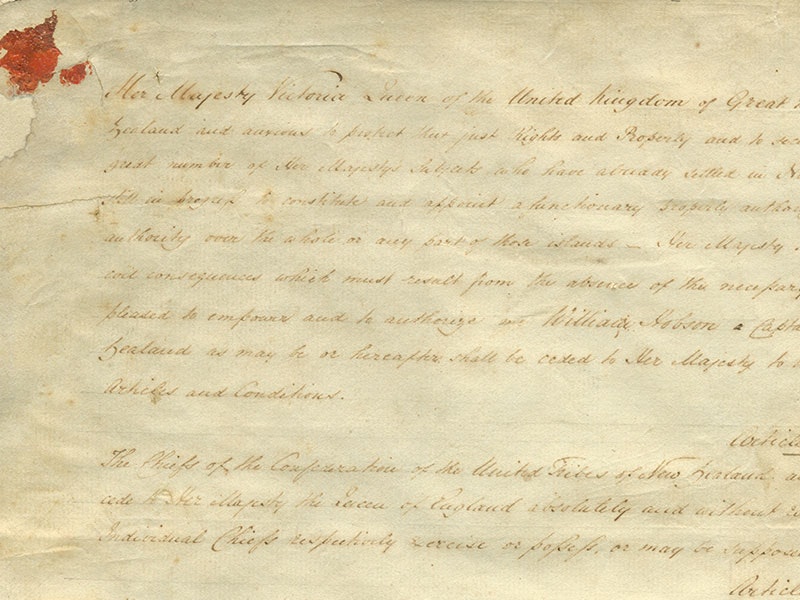 Her Majesty Victoria Queen of the United Kingdom of Great
Zealand and anxious to protect their just Rights and Property and to
great number of Her Majesty's Subjects who have already settled in
still in progress to constitute and appoint a functionary properly
authority over the whole or any part of those islands — Her Majesty
evil consequences which must result from the absence of the necessary
pleased to empower and to authorize me William Hobson a
Zealand as may be or hereafter shall be ceded to Her Majesty to
Articles and Conditions.
Article
The Chiefs of the Confederation of the United Tribes of New Zealand
cede to Her Majesty the Queen of England absolutely and without
Individual Chiefs respectively exercise or possess, or may be
Article